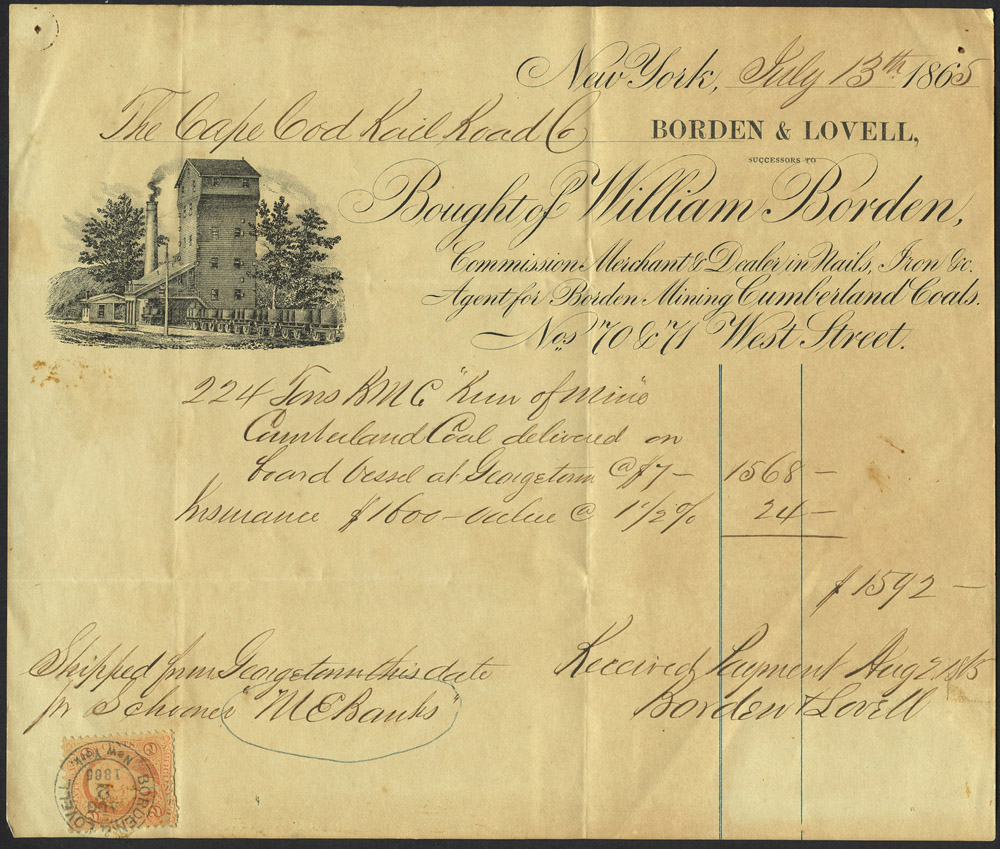 New York, July 13th 1865
The Cape Cod Rail Road Co
BORDEN & LOVELL,
SUCCESSORS TO
Bought of William Borden,
Commission Merchant & Dealer in Nails, Iron &c.
Agent for Borden Mining Cumberland Coals.
Nos 70 & 71 West Street.
224 Tons BMC "Run of Mine"
Cumberland Coal delivered on
board vessel at Georgetown @ $7 — 1568 —
Insurance $1600 — value @ 1 1/2 % 24 —
$1592 —
Shipped from Georgetown this date
pr Schooner "M E Banks"
Received Payment Aug 2, 1865
Borden & Lovell
BORDEN & LOVELL
New York
1865
2